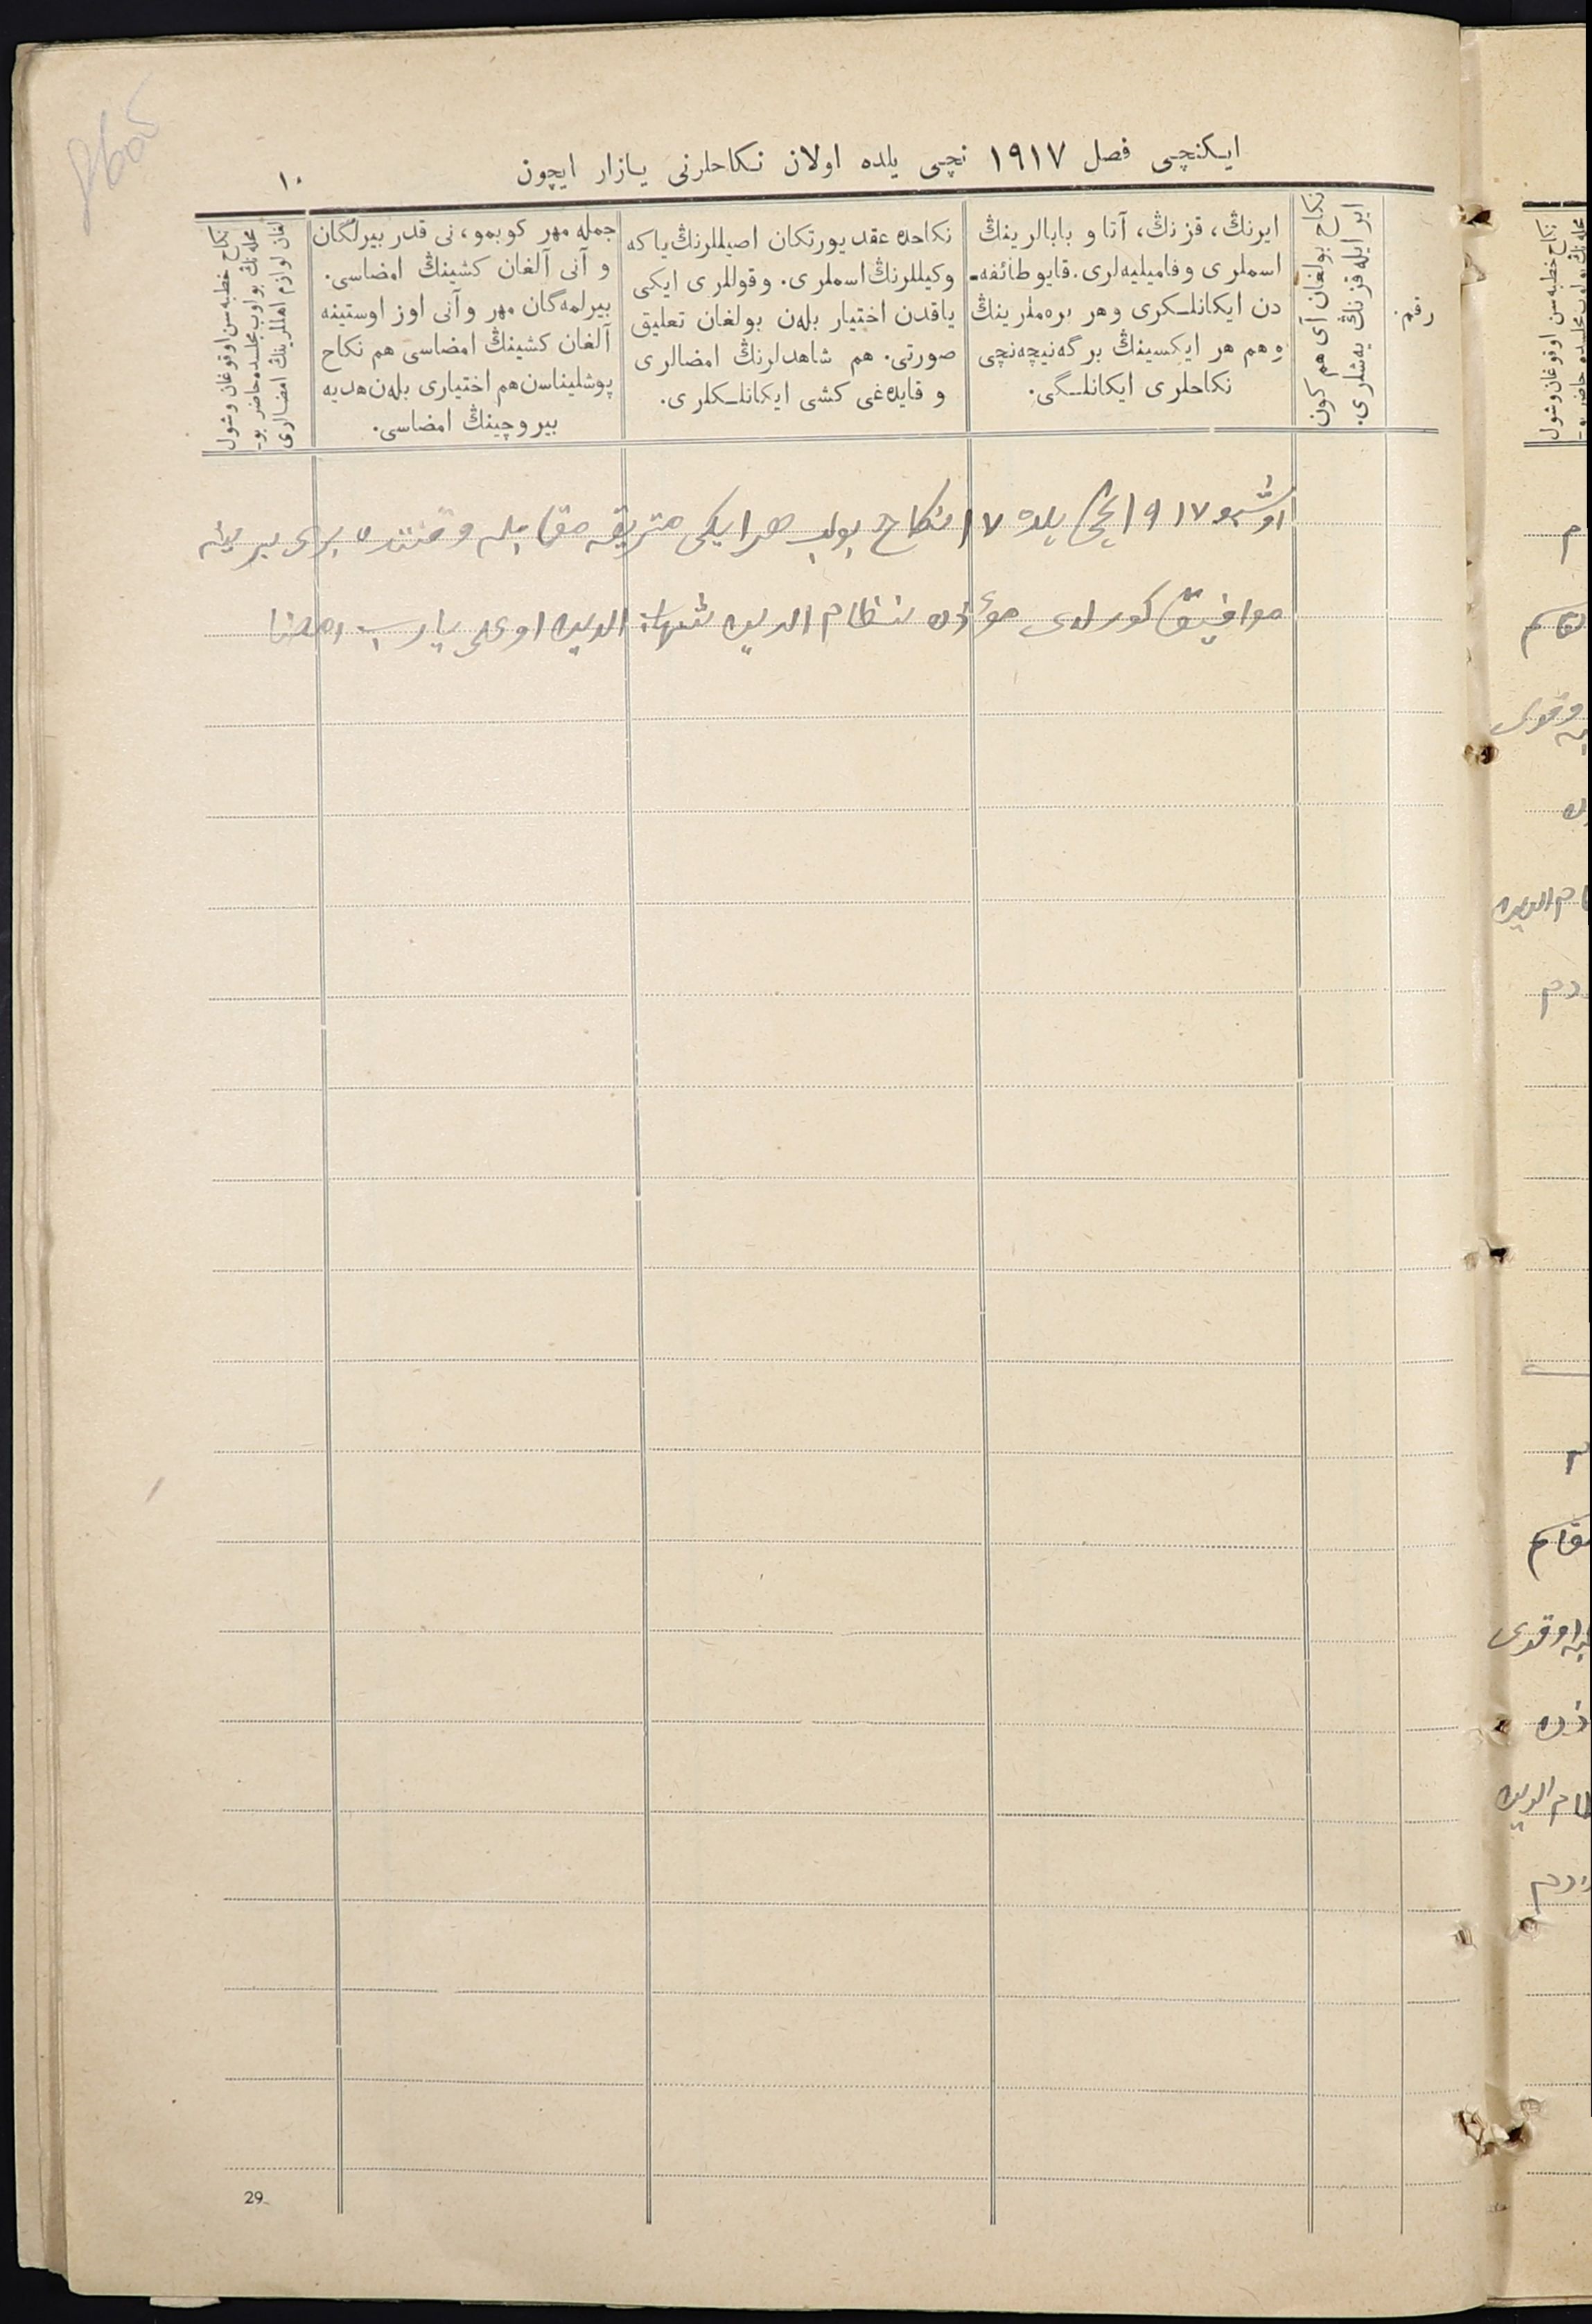 ایکنچی فصل ۱۹۱۷ نچی یلده اولان نکاحلرنی یازار ایچون
۱۰
رقم
نکاح بولغان آی هم کون
ایر ایله قزنڭ یه‌شلری.
ایرنڭ، قزنڭ، آتا و بابالرینڭ
اسملری و فامیلیه‌لری. قایو طائفه‌ـ
دن ایکانلـکری و هر بره‌ملرینڭ
و هم هر ایکسینڭ برگه نیچه‌نچی
نکاحلری ایکانلـگی.
نکاحده عقد یورتکان اصیللرنڭ یا که
وکیللرنڭ اسملری. و قوللری ایکی
یاقدن اختیار بله‌ن بولغان تعلیق
صورتی. هم شاهدلرنڭ امضالری
و قایده‌غی کشی ایکانلـکلری.
جمله مهر کوبمو، نی قدر بیرلگان
و آنی آلغان کشینڭ امضاسی.
بیرلمه‌گان مهر و آنی اوز اوستینه
آلغان کشینڭ امضاسی هم نکاح
پوشلیناسن هم اختیاری بله‌ن هدیه
بیروچینڭ امضاسی.
نکاح خطبه‌سن اوقوغان و شول
محله‌نڭ بو اوب مجلسده حاضر بو۔
لغان لوازم اهللرینڭ امضالری
اوشبو ۱۹۱۷ نچی یلده ۱۷ نکاح بولب هر ایکی متریقه مقابله وقتنده بری برینه
موافیق کورلدی مؤذن نظام الدین شهاب الدین اوغلی یازب امضا
29